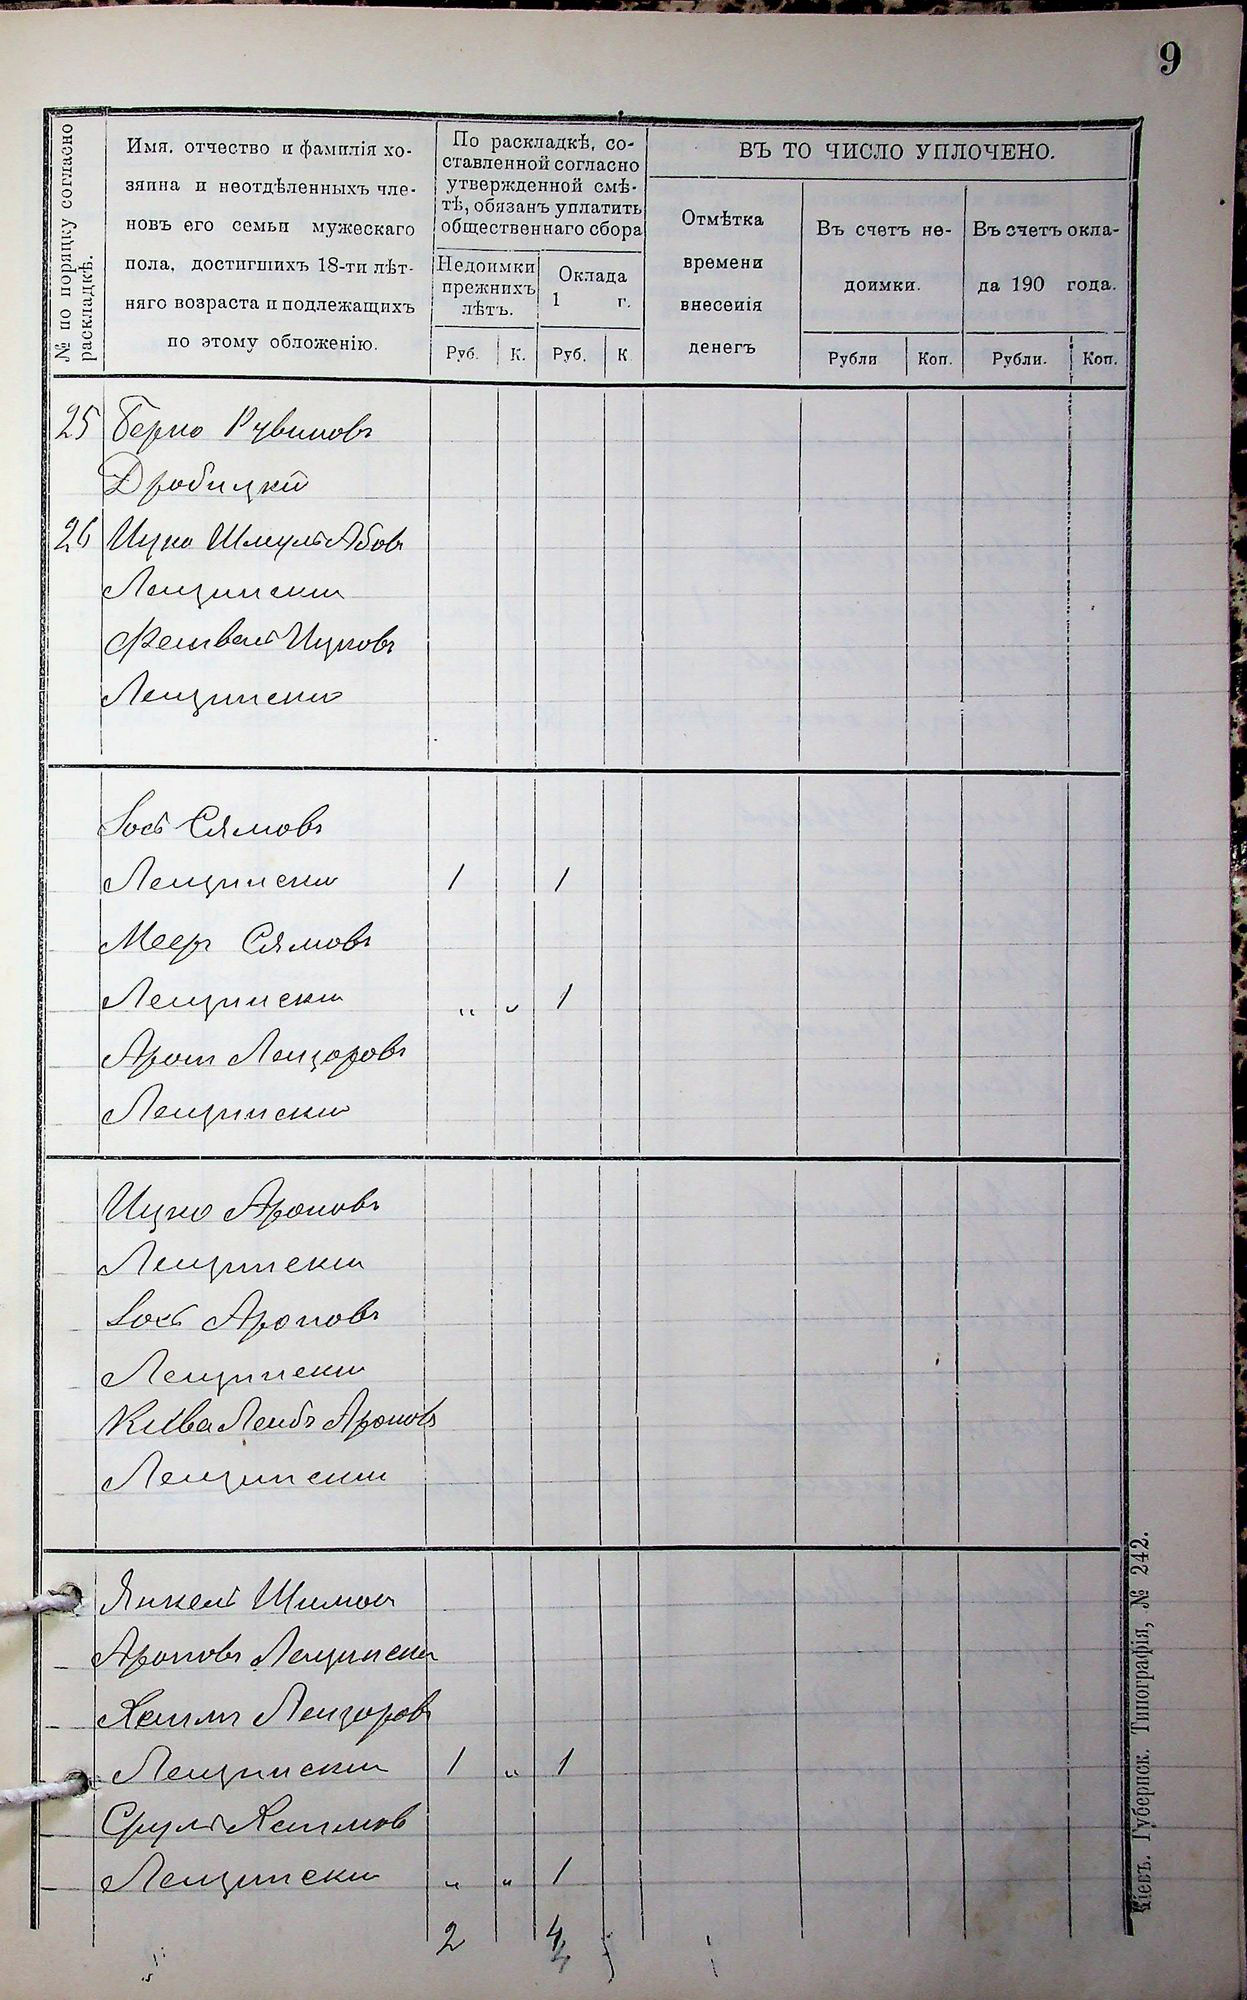 9
№ по порядку согласно раскладкѣ.
Имя, отчество и фамилія хо-
зяина и неотдѣленныхъ чле-
новъ его семьи мужескаго
пола, достигшихъ 18-ти лѣт-
няго возраста и подлежащихъ
по этому обложенію.
По раскладкѣ, со-
ставленной согласно
утвержденной смѣ-
тѣ, обязанъ уплатить
общественнаго сбора
Недоимки
прежнихъ
лѣтъ.
Оклада
1 г.
Руб. К. Руб. К
ВЪ ТО ЧИСЛО УПЛОЧЕНО.
Отмѣтка
времени
внесенія
денегъ
Въ счетъ не-
доимки.
Рубли Коп.
Въ счетъ окла-
да 190 года.
Рубли. Коп.
25 Берко Рувиновъ
Дробицкій
26 Ицко Шмуль Абовъ
Лещински
Фейвель Ицковъ
Лещински
Іось Сямовъ
Лещински 1 1
Меер Сямовъ
Лещински " " 1
Арон Лейзоровъ
Лещински
Ицко Ароновъ
Лещински
Іось Ароновъ
Лещински
Кива Лейбъ Ароновъ
Лещински
Янкель Шимон
Ароновъ Лещински
Хаимъ Лейзоровъ
Лещински 1 " 1
Сруль Хаимов
Лещински " " 1
2 4
Кіевъ. Губернск. Типографія, № 242.